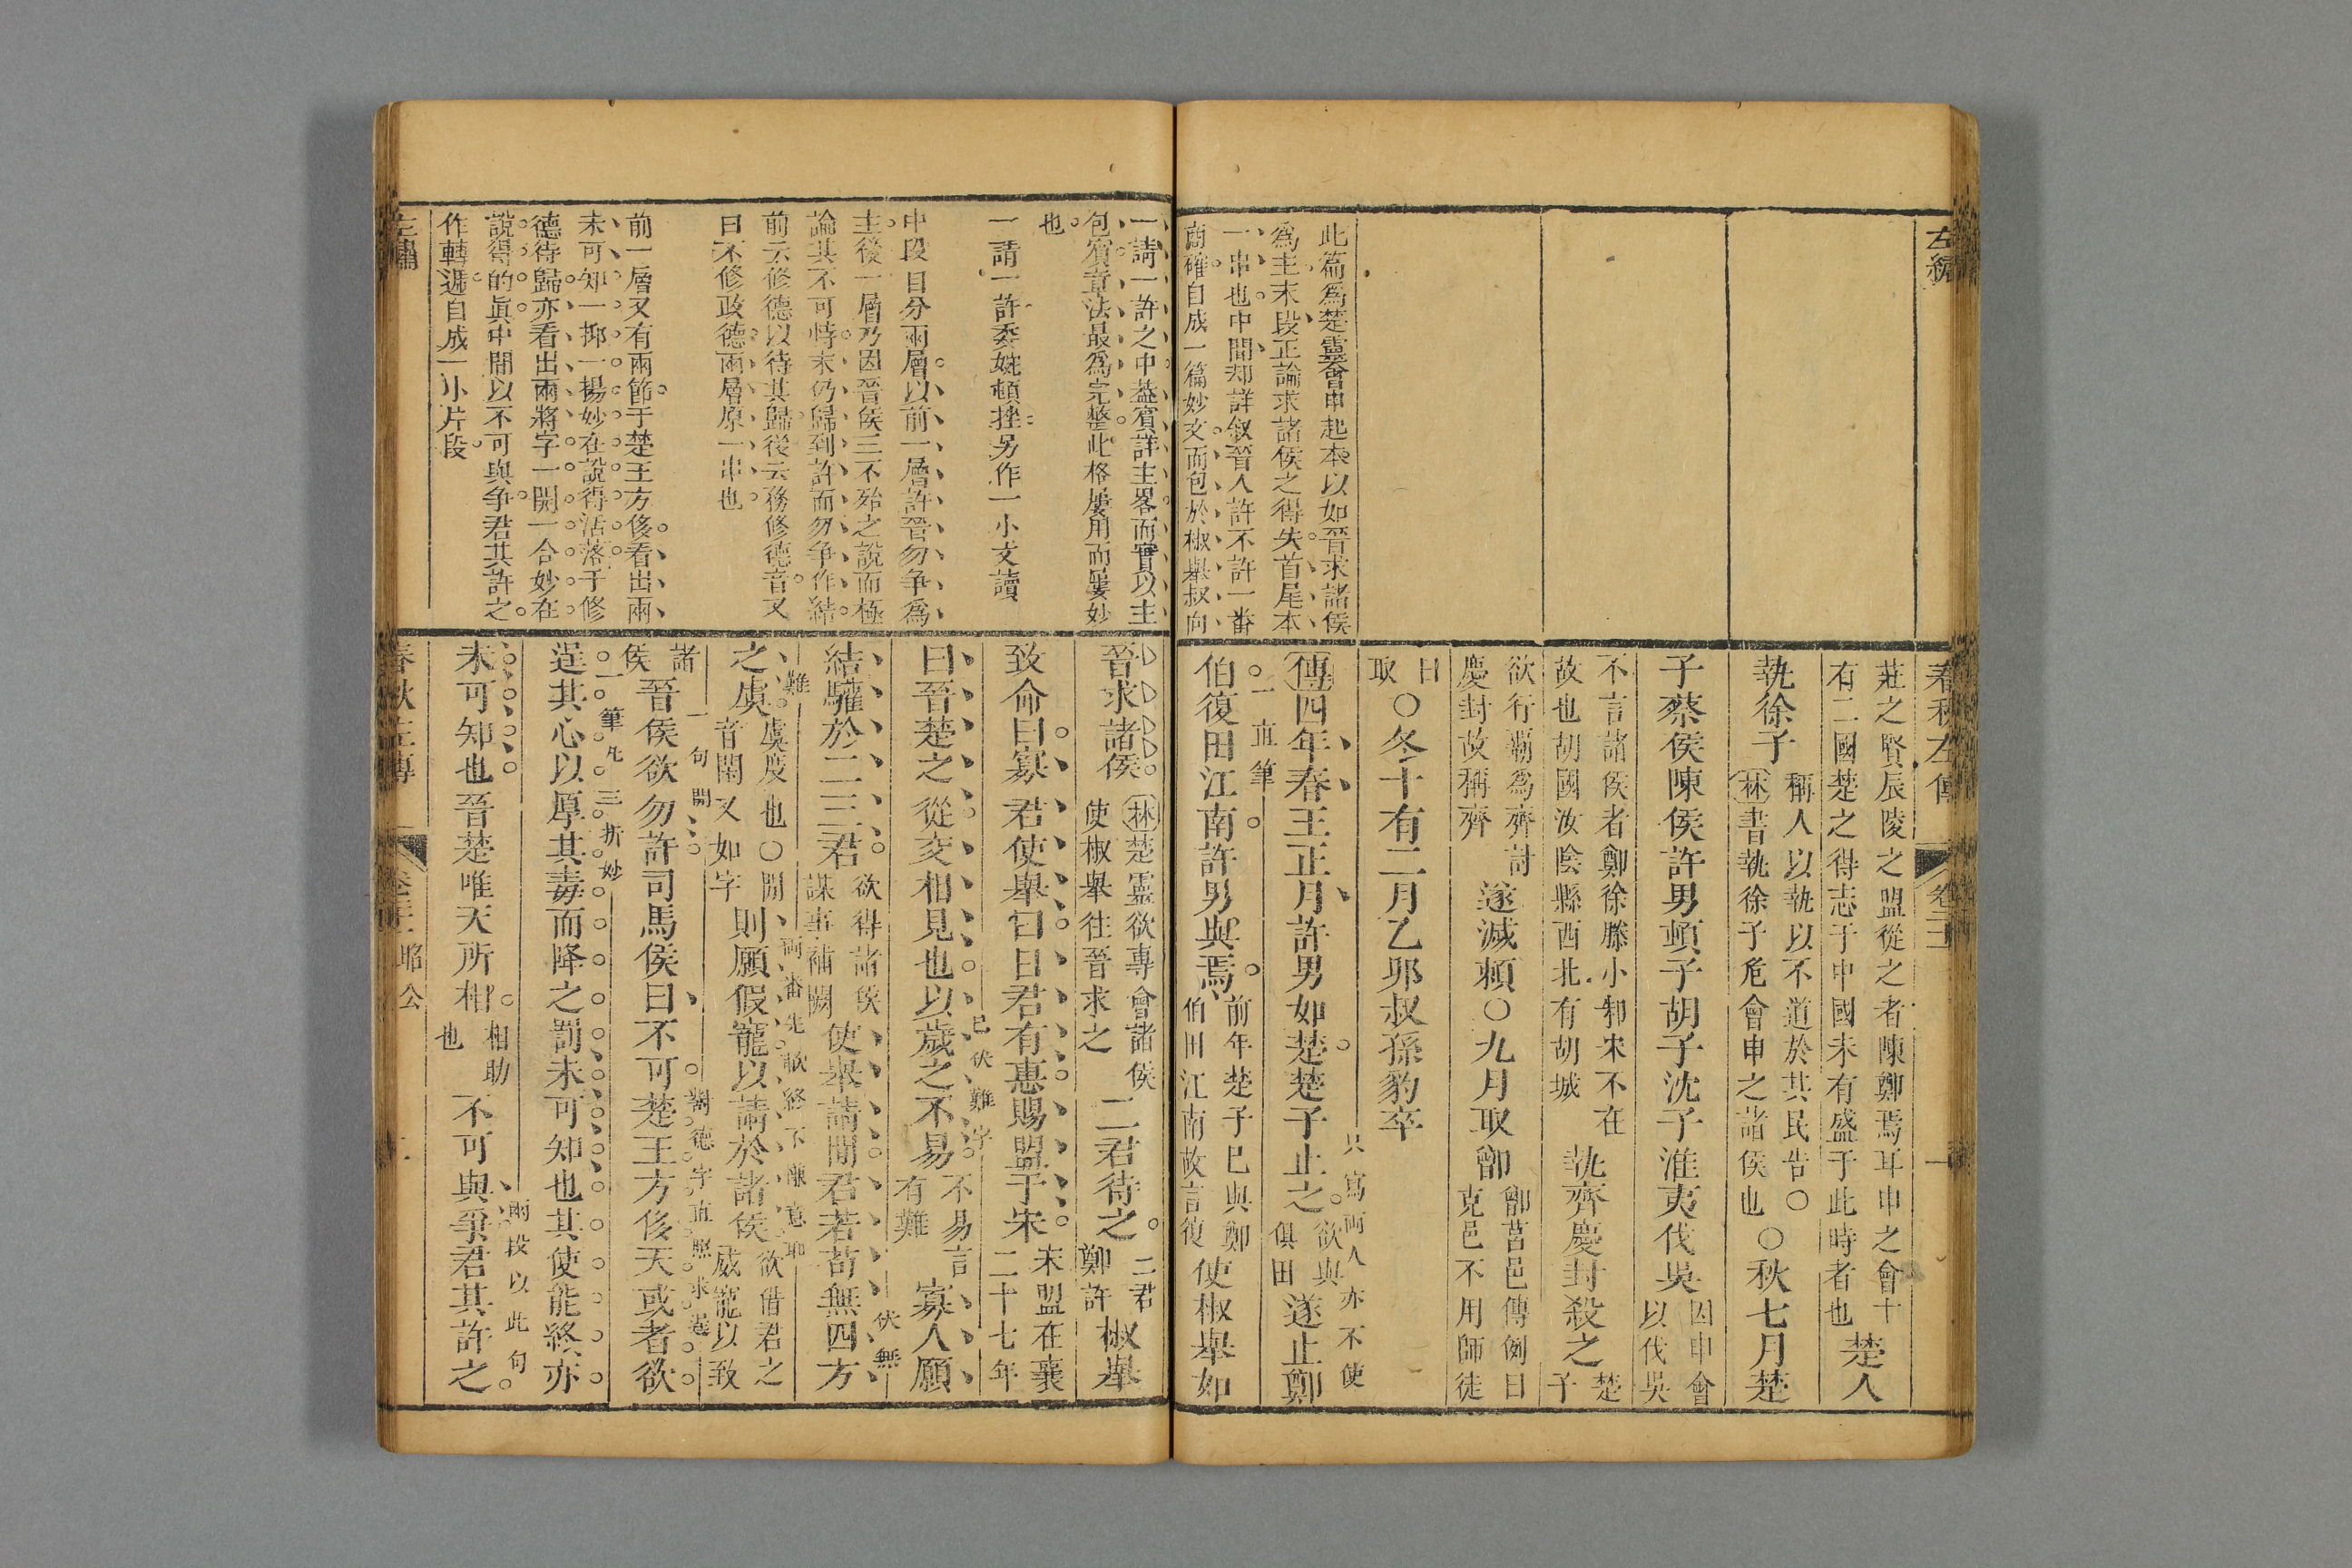 左繡
此篇為楚靈會申起本以如晉求諸侯
為主末段正論求諸侯之得失首尾本
一串也中間却詳叙晉人許不許一番
商確自成一篇妙文而包於椒舉叔向
春秋左傳
卷二十一
一
莊之賢辰陵之盟從之者陳鄭焉耳申之會十
有二國楚之得志于中國未有盛于此時者也
楚人
執徐子
稱人以執以不道於其民告○
林書執徐子危會申之諸侯也
○秋七月楚
子蔡侯陳侯許男頓子胡子沈子淮夷伐吳
因申會
以伐吳
不言諸侯者鄭徐滕小邾宋不在
故也胡國汝陰縣西北有胡城
執齊慶封殺之
楚
子
欲行霸為齊討
慶封故稱齊
遂滅賴○九月取鄫
鄫莒邑傳例曰
克邑不用師徒
曰
取
○冬十有二月乙卯叔孫豹卒
傳四年春王正月許男如楚楚子止之
欲與
俱田
遂止鄭
只寫兩人亦不使
一直筆
伯復田江南許男與焉
前年楚子已與鄭
伯田江南故言復
使椒舉如
一請一許之中益賓詳主畧而實以主
包賓章法最為完整此格屢用而屢妙
也
一請一許委婉頓挫另作一小文讀
中段目分兩層以前一層許晉勿爭為
主後一層乃因晉侯三不殆之說而極
論其不可恃末仍歸到許而勿爭作結
前云修德以待其歸後云務修德音又
曰不修政德兩層原一串也
前一層又有兩節于楚王方侈看出兩
未可知一抑一揚妙在說得活落于修
德待歸亦看出兩將字一開一合妙在
說得的眞中間以不可與爭君其許之
作轉遞自成一小片段
左繡
晉求諸侯
林楚靈欲專會諸侯
使椒舉往晉求之
二君待之
二君
鄭許
椒舉
致命曰寡君使舉曰日君有惠賜盟于宋
宋盟在襄
二十七年
曰晉楚之從交相見也以歲之不易
不易言
有難
寡人願
已伏難字
結驩於二三君
欲得諸侯
謀事補闕
使舉請間君若苟無四方
伏無
難
之虞
虞度也○間
音閑又如字
則願假寵以請於諸侯
欲借君之
威寵以致
諸
侯
一句開
晉侯欲勿許司馬侯曰不可楚王方侈天或者欲
一筆凡三折妙
逞其心以厚其毒而降之罰未可知也其使能終亦
未可知也晉楚唯天所相
相助
也
不可與爭君其許之
兩段以此句
春秋左傳
昭公